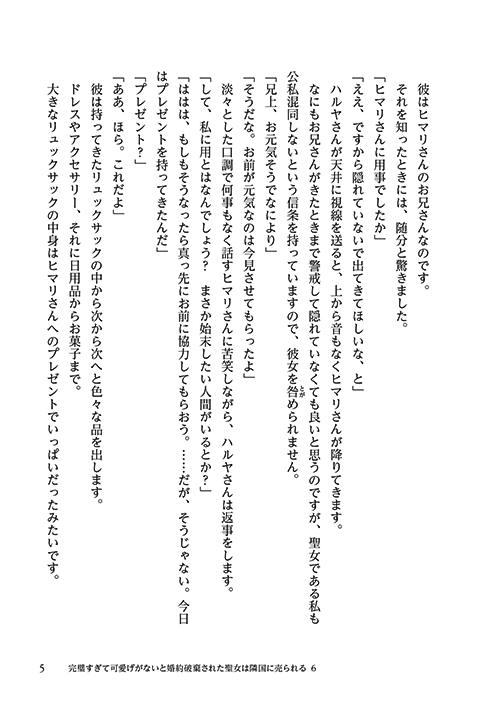 彼はヒマリさんのお兄さんなのです。
それを知ったときには、随分と驚きました。
「ヒマリさんに用事でしたか」
「ええ、ですから隠れていないで出てきてほしいな、と」
ハルヤさんが天井に視線を送ると、上から音もなくヒマリさんが降りてきます。
なにもお兄さんがきたときまで警戒して隠れていなくても良いと思うのですが、聖女である私も
公私混同しないという信条を持っていますので、彼女を咎められません。
とが
「兄上、お元気そうでなにより」
「そうだな。お前が元気なのは今見させてもらったよ」
淡々とした口調で何事もなく話すヒマリさんに苦笑しながら、ハルヤさんは返事をします。
「して、私に用とはなんでしょう？　まさか始末したい人間がいるとか？」
「ははは、もしもそうなったら真っ先にお前に協力してもらおう。……だが、そうじゃない。今日
はプレゼントを持ってきたんだ」
「プレゼント？」
「ああ、ほら。これだよ」
彼は持ってきたリュックサックの中から次から次へと色々な品を出します。
ドレスやアクセサリー、それに日用品からお菓子まで。
大きなリュックサックの中身はヒマリさんへのプレゼントでいっぱいだったみたいです。
5　完璧すぎて可愛げがないと婚約破棄された聖女は隣国に売られる 6